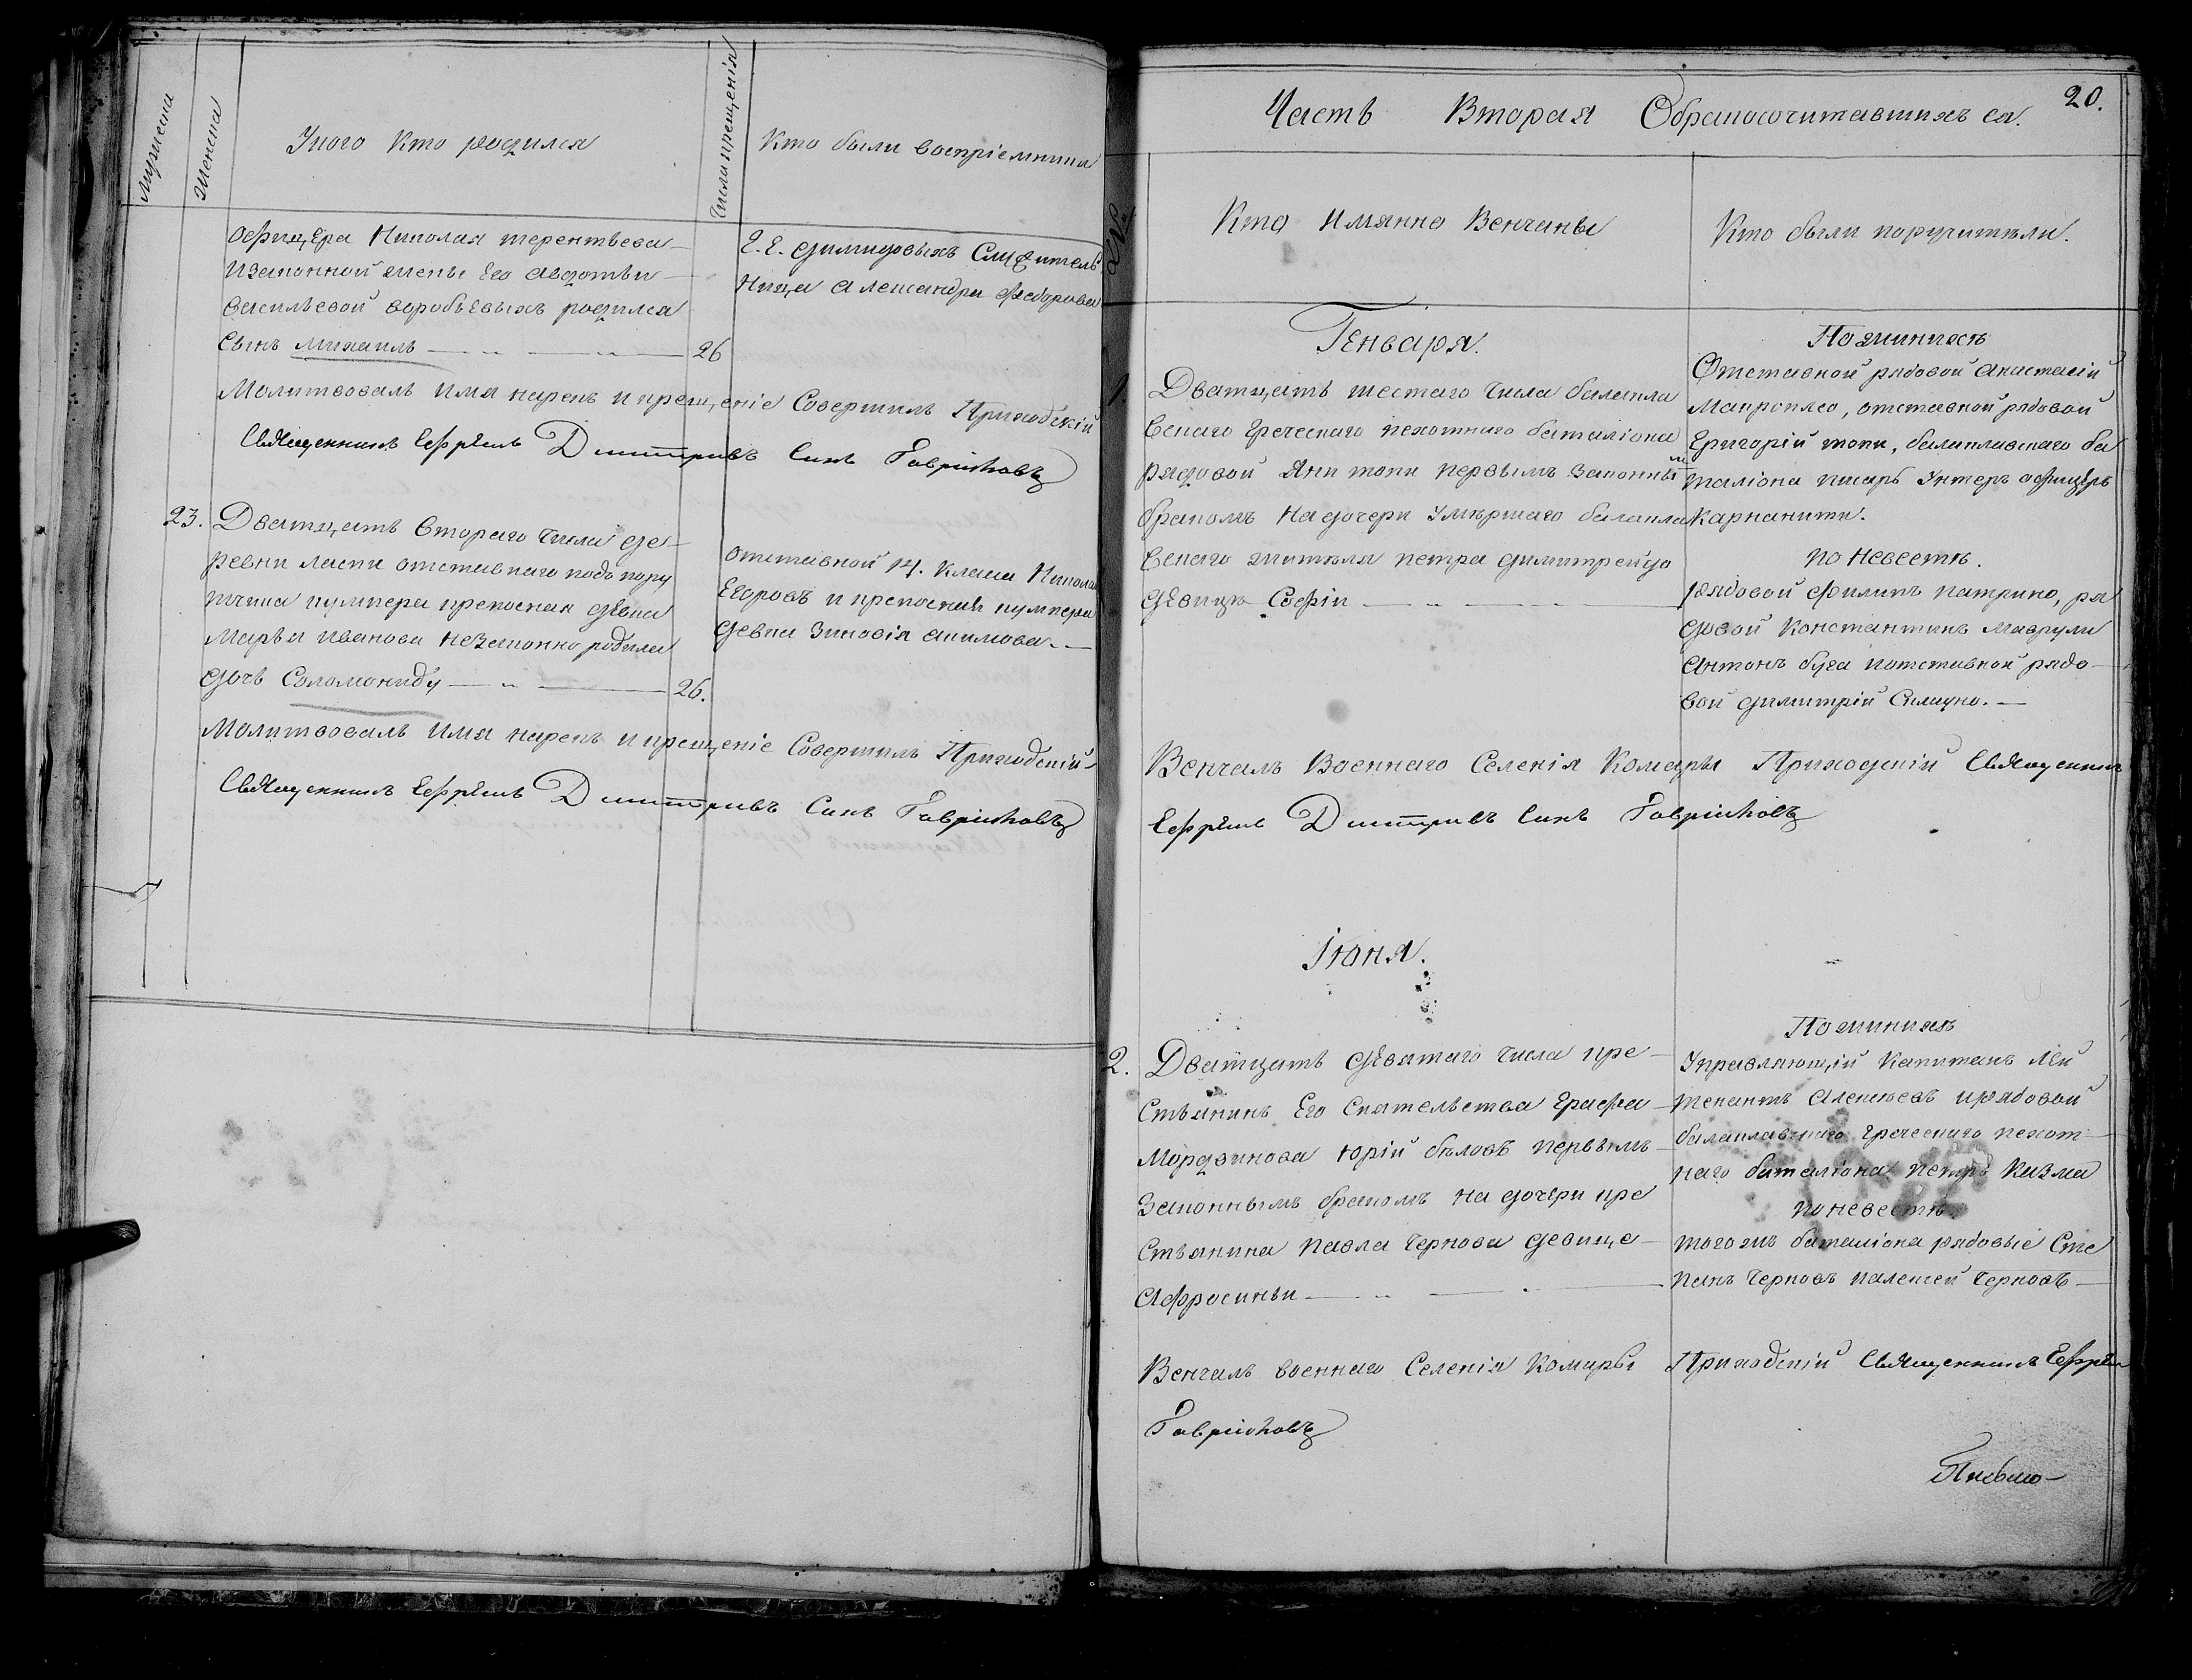 мужеска
женска
Укого кто родился
Числа крещенія
Кто были воспріемники
офицера Николая терентьева
изаконной жены Его Авдотьи
васильевой воробьевыхъ родился
Сынъ михаилъ 26
Е. Е. димидовыхъ
ница александра федорова
Молитвовалъ имя нарекъ и крещеніе Совершилъ Приходскій
Священникъ Ефремъ Димитріевъ Синъ Гавріиловъ
23. Дватцать втораго числа де
ревни ласпи отставнаго подъ пору
тчика кумпера крепосная девка
Марья иванова незаконно родила
дочь Соломониду 26.
отставной 14. класа Николай
Егоровъ и крепосная кумпера
девка Зиновія акимова.
Молитвовалъ имя нарекъ и крещеніе Совершилъ Приходскій
Священникъ Ефремъ Димитріевъ Синъ Гавріиловъ
20.
Часть Вторая Обракосочитавшихъ ся.
№
Кто имянно Венчаны
Кто были поручители.
Генваря.
1. Дватцать шестаго числа балакла
вскаго греческаго пехотнаго баталіона
рядовой Яни топи первымъ законны
мъ
бракомъ надочери умершаго балакла
вскаго жителя петра димитрейдо
девицы Софіи
По жинихе
Отставной рядовой анастасій
Макропло, отставной рядовой
григорій топи, балаклавскаго ба
таліона писарь унтеръ офицеръ
Карпанити.
по невесте.
рядовой филипъ патрино, ря
довой Константинъ маврули
антонъ буга иотставной рядо
вой димитрій
Венчалъ Военнаго Селенія Комары Приходскій Священникъ
Ефремъ Димитріевъ Синъ Гавріиловъ
Іюня.
2. Дватцать девятаго числа кре
стьянинъ Его Сіятельства графа
Мордвинова юрій беловъ первымъ
законнымъ бракомъ на дочери кре
стьянина павла чернова девице
Афросиньи
По жинихе
Управляющій капитанъ лей
тенантъ алексеевъ ирядовой
балаклавскаго греческаго пехот
наго баталіона петръ казма
по невесте.
тогожъ баталіона рядовые Сте
панъ черновъ иалексей черновъ
Венчалъ военнаго Селенія Комары Приходскій Священникъ Ефремъ
Гавріиловъ